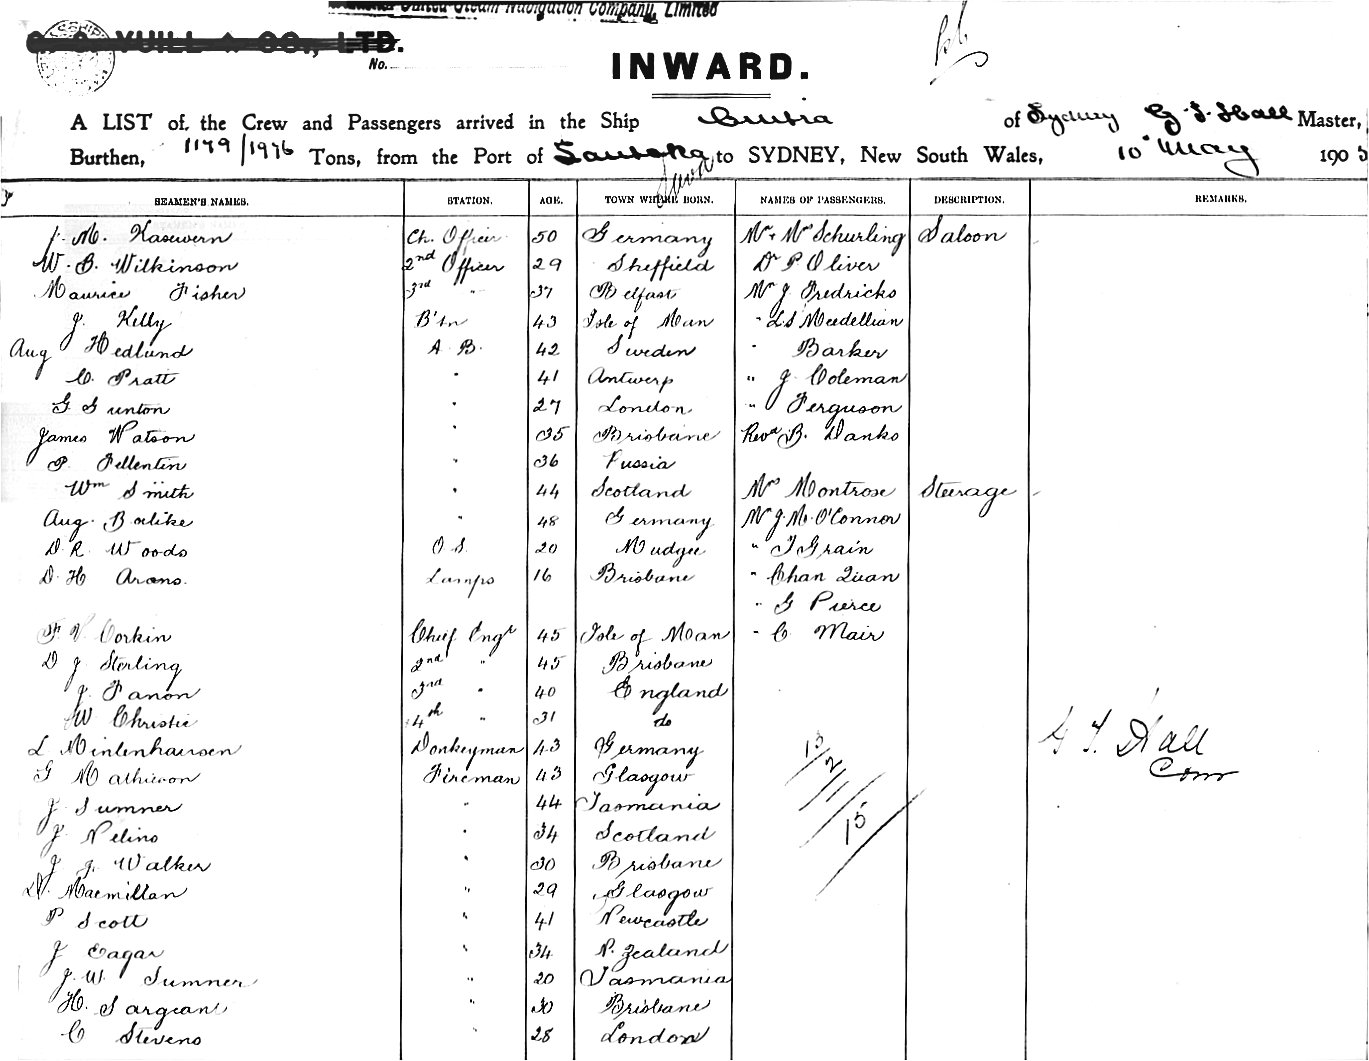 United Steam Navigation Company, Limited
YUILL & CO., LTD.
No.
INWARD.
A LIST of, the Crew and Passengers arrived in the Ship of Sydney G. T. Hall Master,
Burthen, 1179/1976 Tons, from the Port of Lautoka to SYDNEY, New South Wales, 10" May 190
Suva
SEAMEN'S NAMES. STATION. AGE. TOWN WHERE BORN. NAMES OF PASSENGERS. DESCRIPTION. REMARKS.
J. M. Ch. Officer 50 Germany Mr & Mrs Schurling Saloon
W. B. Wilkinson 2nd Officer 29 Sheffield Dr P Oliver
Maurice Fisher 3rd " 37 Belfast Mr J. Fredricks
J. Kelly B'sn 43 Isle of Man "
Aug Hedlund A. B. 42 Sweden " Barker
C. Pratt " 41 Antwerp " J Coleman
G Gunton " 27 London " Ferguson
James Watson " 35 Brisbane Revd B. Danks
P. Fellentin " 36 Russia
Wm Smith " 44 Scotland Mrs Montrose Steerage
Aug. " 48 Germany Mr J. M. O'Connor
D. R. Woods O. S. 20 Mudgee " T Grain
D. H Arons. Lamps 16 Brisbane " Chan Quan
" G Pierce
V Corkin Chief Engr 45 Isle of Man " C Mair
D J Sterling 2nd " 45 Brisbane
J. Fanon 3rd " 40 England
W Christie 4th " 31 do
L Mintenhausen Donkeyman 43 Germany G T. Hall
G Mathieson Fireman 43 Glasgow Com
J Sumner " 44 Tasmania
J. " 34 Scotland
J J. Walker " 30 Brisbane
D. Macmillan " 29 Glasgow
P Scott " 41 Newcastle
J Eagar " 34 N. Zealand
J. W. Sumner " 20 Tasmania
H. Sargean " 30 Brisbane
C Stevens " 28 London
13/2/1/15